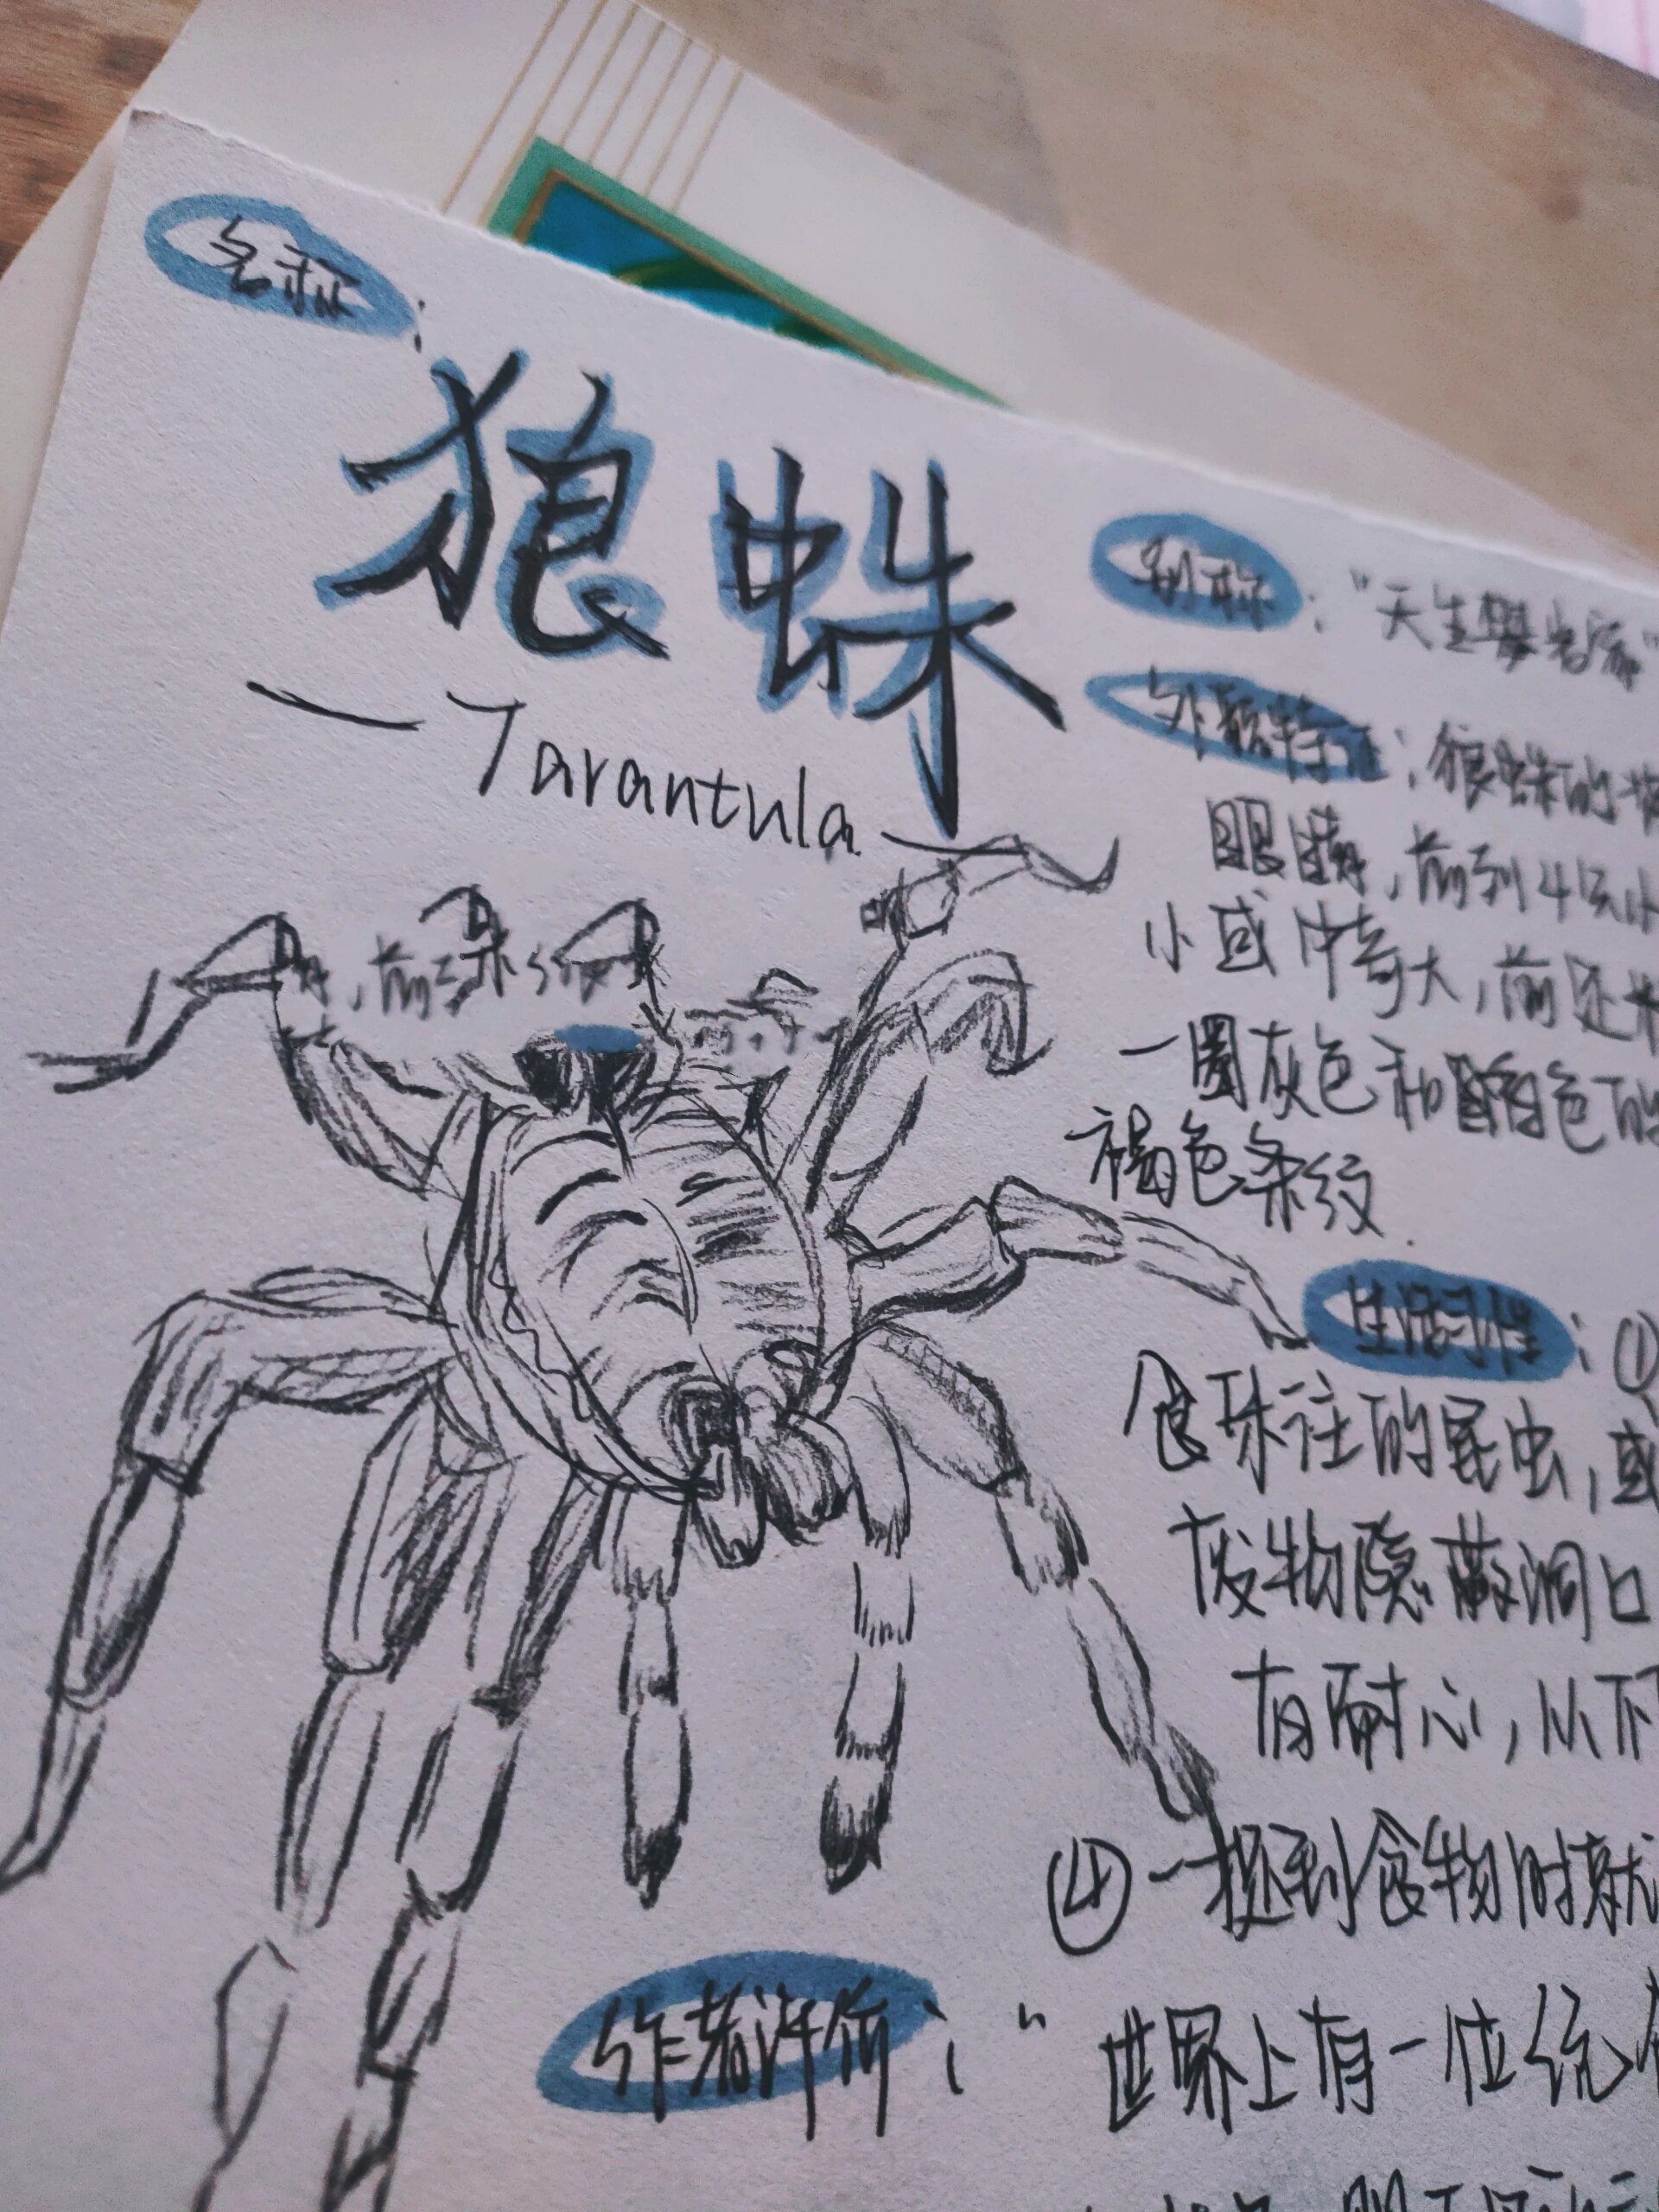 名称：
狼蛛
—Tarantula—
别称："天生攀岩家"
外貌特征：狼蛛的背
眼睛，前列4只小
小或中奇大，前还
一圈灰色和褐色的
褐色条纹.
生活习性：①
食殊洼的昆虫，或
废物隐蔽洞口
有耐心，从不
④一捉到食物时就
作者评价："世界上有一位统